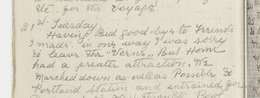 etc. for the voyage.
21st Tuesday
Having Bid good-bye to friends
I made in one way I was sorry
to leave the "Ferns" But Home
had a greater attraction. We
Marched down as well as Possible to
Portland Station and entrained for